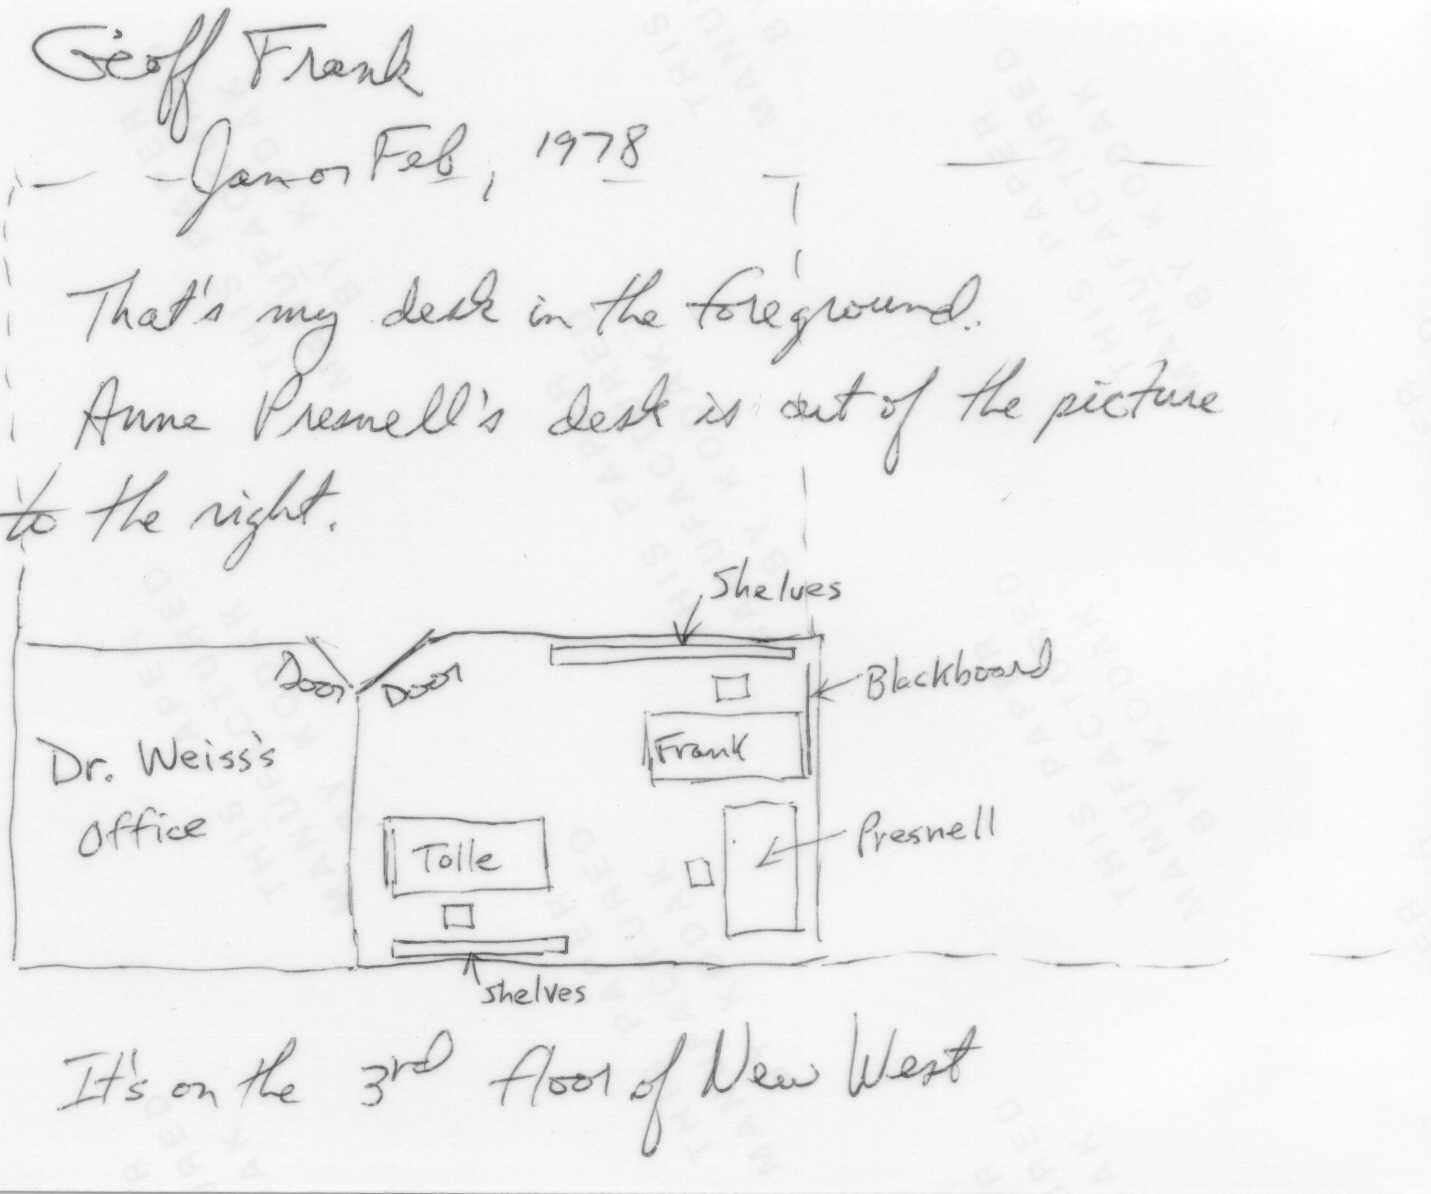 Geoff Frank
Jan or Feb, 1978
That's my desk in the foreground.
Anne Presnell's desk is out of the picture
to the right.
Shelves
Door Door
Blackboard
Frank
Dr. Weiss's
Office
Tolle
Presnell
shelves
It's on the 3rd floor of New West
THIS PAPER
MANUFACTURED
BY KODAK